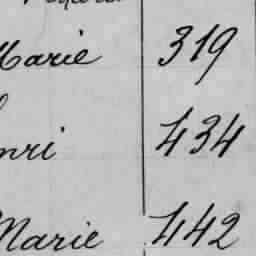 Marie 319
nri 434
Marie 442